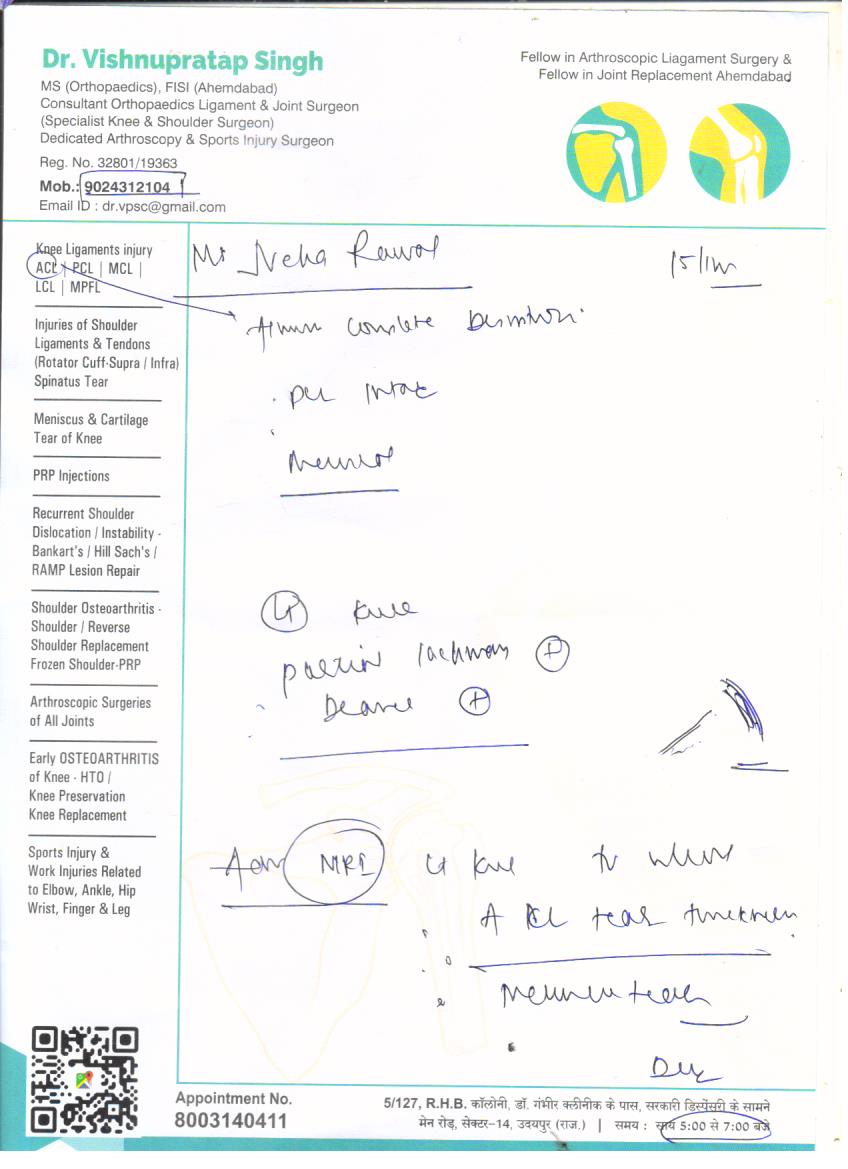 Dr. Vishnupratap Singh
MS (Orthopaedics), FISI (Ahemdabad)
Consultant Orthopaedics Ligament & Joint Surgeon
(Specialist Knee & Shoulder Surgeon)
Dedicated Arthroscopy & Sports Injury Surgeon
Reg. No. 32801/19363
Mob.: 9024312104
Email ID : dr.vpsc@gmail.com
Fellow in Arthroscopic Liagament Surgery &
Fellow in Joint Replacement Ahemdabad
Knee Ligaments injury
ACL | PCL | MCL |
LCL | MPFL
Injuries of Shoulder
Ligaments & Tendons
(Rotator Cuff-Supra / Infra)
Spinatus Tear
Meniscus & Cartilage
Tear of Knee
PRP Injections
Recurrent Shoulder
Dislocation / Instability -
Bankart's / Hill Sach's /
RAMP Lesion Repair
Shoulder Osteoarthritis -
Shoulder / Reverse
Shoulder Replacement
Frozen Shoulder-PRP
Arthroscopic Surgeries
of All Joints
Early OSTEOARTHRITIS
of Knee - HTO /
Knee Preservation
Knee Replacement
Sports Injury &
Work Injuries Related
to Elbow, Ankle, Hip
Wrist, Finger & Leg
Ms Neha Rawal
complete
PCL Intact
Lt Knee
Lachman +
+
Adv MRI Lt Knee
tear
tear
Appointment No.
8003140411
5/127, R.H.B. कॉलोनी, डॉ. गंभीर क्लीनीक के पास, सरकारी डिस्पेंसरी के सामने
मेन रोड़, सेक्टर-14, उदयपुर (राज.) | समय : सायं 5:00 से 7:00 बजे